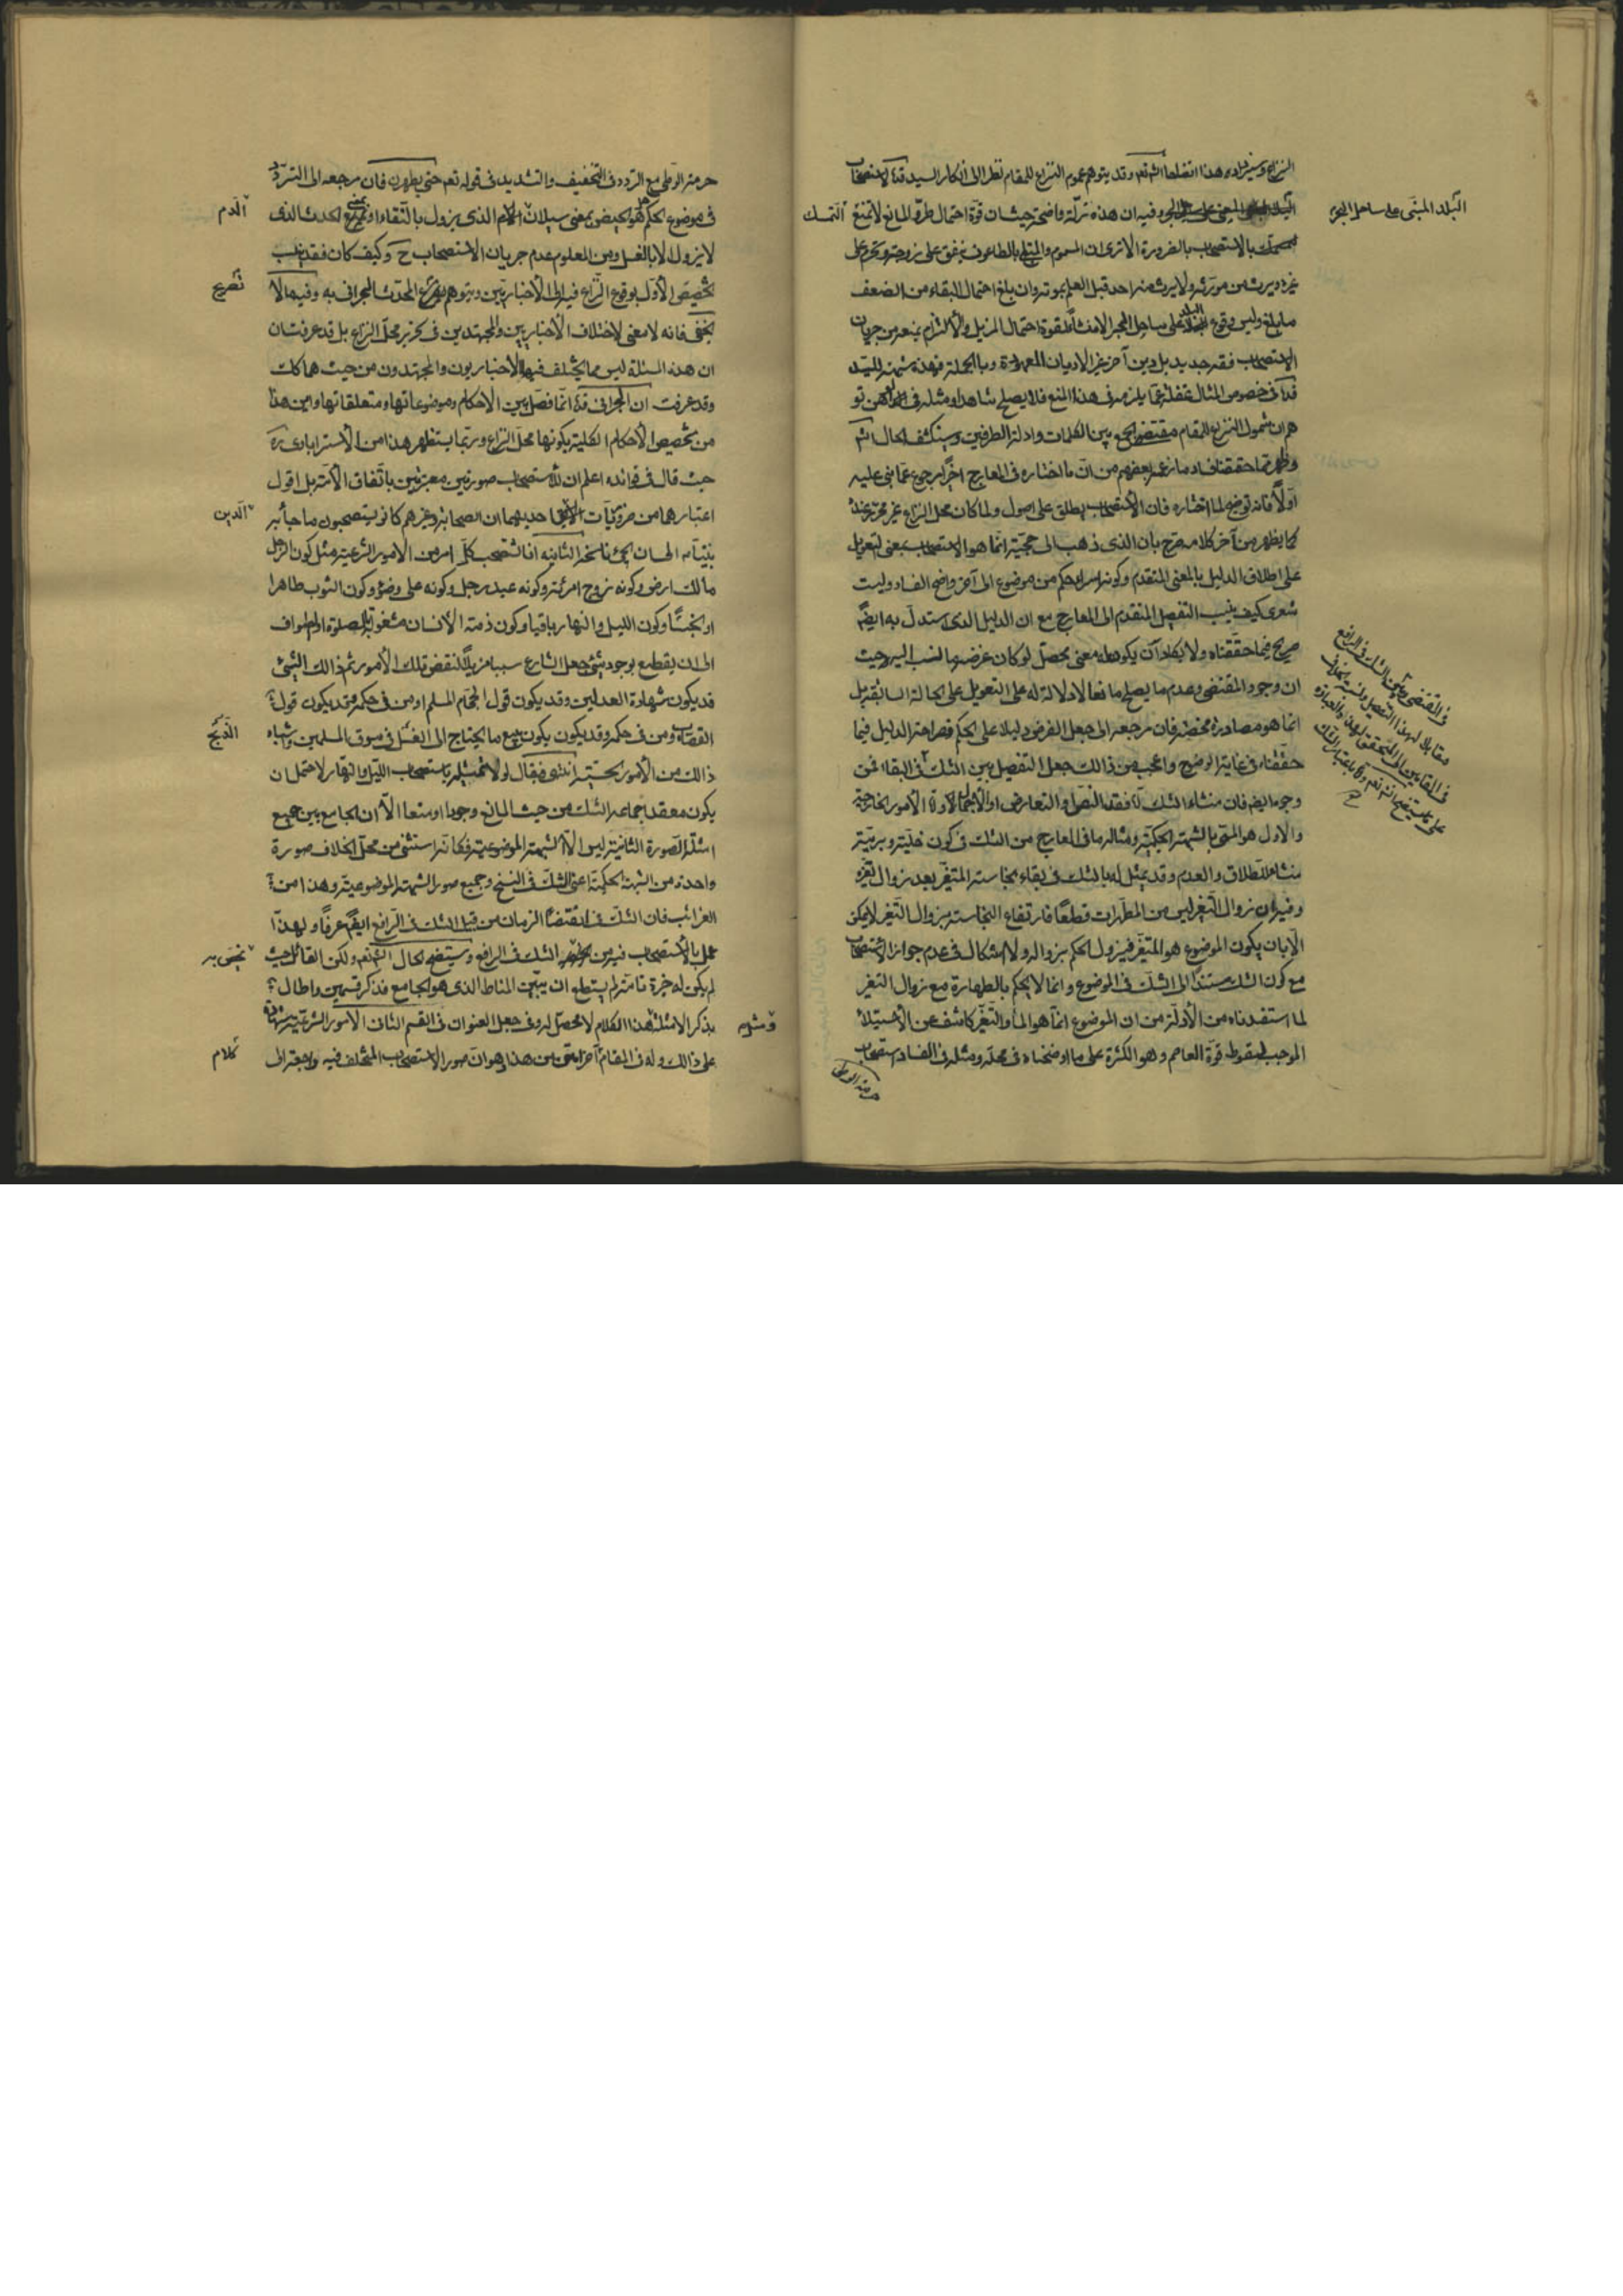 النزاع وسيزيده هذا اتضاحا انشاء تعم وقد يتوهم عموم النزاع للمقام نظرا الى انكار السيد قدّه لاستصحاب
البلد المبنى على ساحل البحر وفيه ان هذه زلّة واضحة حيث ان قوة احتمال طروّ المانع لا تمنع التمسك
البلد المبنى على ساحل البحر
بالاستصحاب بالضرورة الا ترى ان المسموم والمبتلى بالطاعون ينفق على زوجته وتحرم على
غيره ويرث من مورّثه ولا يرث منه احد قبل العلم بموته وان بلغ احتمال البقاء من الضعف
ما بلغ وليس وقوع البلد على ساحل البحر الا منشأ لقوة احتمال المزيل والالتزام بمنعه من جريان
الاستصحاب فقه جديد بل دين آخر غير الاديان المعهودة وبالجملة فهذه شبهة للسيد
قدّه فى خصوص المثال غفلة عمّا يلزمه فى هذا المنع فلا يصلح شاهدا ومثله فى الوهن تو
هم ان شمول النزاع للمقام مقتضى الجمع بين الكلمات وادلة الطرفين وسينكشف الحال انش
وظهر مما حققنا فساد ما زعمه بعضهم من ان ما اختاره فى المعارج اخيرا رجوع عما بنى عليه
اولا فانه توضيح لما اختاره فان الاستصحاب يطلق على اصول ولما كان محل النزاع غير محرّر عنده
كما يظهر من آخر كلامه صرح بان الذى ذهب الى حجيته انما هو الاستصحاب بمعنى التعويل
على اطلاق الدليل بالمعنى المتقدم وكونه اسراء حكم من موضوع الى آخر واضح الفساد وليت
شعرى كيف ينسب التفصيل المتقدم الى المعارج مع ان الدليل الذى استدل به ايضا
صريح فيما حققناه ولا يكاد ان يكون له معنى محصل لو كان غرضه ما نسب اليه حيث
ان وجود المقتضى وعدم ما يصلح مانعا لا دلالة له على التعويل على الحالة السابقة بل
انما هو مصادرة محضة فان مرجعه الى جعل الفرض دليلا على الحكم فصراحة الدليل فيما
حققناه فى غاية الوضوح واعجب من ذالك جعل التفصيل بين الشك فى البقاء من
وجوها ايضا فان منشاء الشك اما فقد النص او التعارض او الاجمال او الامور الخارجة
والاول هو المسمى بالشبهة الحكمية ومثاله ما فى المعارج من الشك فى كون خلية وبرية
منشاء للطلاق والعدم وقد يمثل له بالشك فى بقاء نجاسة المتغير بعد زوال تغيره
وفيه ان زوال التغير ليس من المطهرات قطعا فارتفاع النجاسة بزوال التغير لا يمكن
الا بان يكون الموضوع هو المتغير فيزول الحكم بزواله ولا اشكال فى عدم جواز الاستصحاب
مع كون الشك مستندا الى الشك فى الموضوع وانما لا يحكم بالطهارة مع زوال التغير
لما استفدناه من الأدلة من ان الموضوع انما هو الماء والتغير كاشف عن الاستيلاء
الموجب لسقوط قوة العاصم وهو الكثرة على ما اوضحناه فى محله ومثله فى الفساد استصحاب
حرمة الوطى
حرمة الوطى مع التردد فى التخفيف والتشديد فى قوله تعم حتى يطهرن فان مرجعه الى التردّد
فى موضوع الحكم هل هو الحيض بمعنى سيلان الدم الذى يزول بالنقاء او بمعنى الحدث الذى
الدم
لا يزول الا بالغسل ومن المعلوم عدم جريان الاستصحاب ح وكيف كان فقد ينسب
تخصيص الاول بوقوع النزاع فيه الى الأخباريين ويتوهم تصريح المحدّث البحرانى به وفيه ما لا
تصريح
يخفى فانه لا معنى لاختلاف الأخباريين والمجتهدين فى تحرير محل النزاع بل قد عرفت ان
ان هذه المسئلة ليس مما يختلف فيها الأخباريون والمجتهدون من حيث هما كك
وقد عرفت ان البحرانى قدّه انما فصّل بين الأحكام وموضوعاتها ومتعلقاتها واين هذا
من تخصيص الأحكام الكلية بكونها محل النزاع وربّما يستظهر هذا من الأسترابادى ره
حيث قال فى فوائده اعلم ان للاستصحاب صورتين معتبرتين باتفاق الأمّة بل اقول
اعتبارهما من ضروريات الدين احديهما ان الصحابة وغيرهم كانوا يستصحبون ما جاء به
الدين
نبيّنا ص الى ان يجئ ناسخه الثانية انا نستصحب كلّ امر من الامور الشرعية مثل كون الرجل
مالك ارض وكونه زوج امرئة وكونه عبد رجل وكونه على وضوء وكون الثوب طاهرا
او نجسًا وكون الليل والنهار باقيا وكون ذمة الأنسان مشغولة بصلوة او طواف
الى ان يقطع بوجود شئ جعل الشارع سببا مزيلاً لنقض تلك الأمور ثم ذالك الشئ
قد يكون شهادة العدلين وقد يكون قول الحجّام المسلم او من فى حكمه وقد يكون قول
القصاب ومن فى حكمه وقد يكون بيع ما يحتاج الى الذبح فى سوق المسلمين واشباه
الذبح
ذالك من الأمور الحسّية انتهى فيقال لولا تمثيله باستصحاب الليل والنهار لاحتمل ان
يكون معقد اجماعه الشك من حيث المانع وجودا او منعا الّا ان الجامع بين جميع
امثلة الصورة الثانية ليس الّا الشبهة الموضوعية فكانه استثنى من محل الخلاف صورة
واحدة من الشبهة الحكميّة اعنى الشك فى النسخ وجميع صور الشبهة الموضوعية وهذا من
الغرائب فان الشك فى انقضاء الزمان من قبيل الشك فى الرافع ايضا عرفًا ولهذا
عمل بالأستصحاب فيه من يخصّه بالشك فى الرافع وسيتضح الحال انش تعم ولكن القائل حيث
يخصّ به
لم يكن له خبرة تامة لم يستطع ان يبيّن المناط الذى هو الجامع فذكر قسمين واطال
بذكر الامثلة هذا الكلام لا محصل له وفى جعل العنوان فى القسم الثانى الامور الشرعية شهادة
على ذالك وله فى المقام كلام آخر اصرح من هذا وهو ان صور الاستصحاب المختلف فيه راجعة الى
كلام